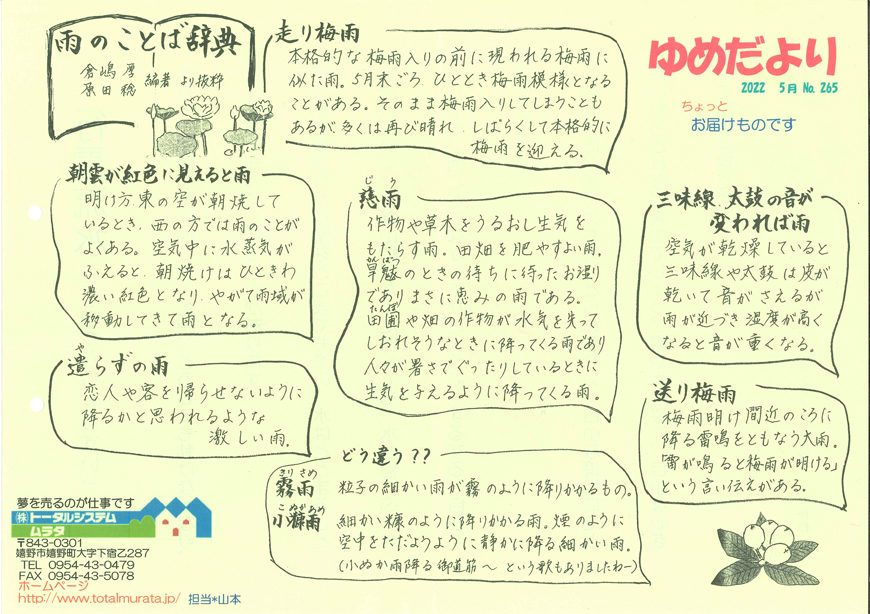 雨のことば辞典
倉嶋 厚
原田 稔 編著 より抜粋
走り梅雨
本格的な梅雨入りの前に現われる梅雨に
似た雨。5月末ごろ、ひととき梅雨模様となる
ことがある。そのまま梅雨入りしてしまうことも
あるが、多くは再び晴れ、しばらくして本格的に
梅雨を迎える。
ゆめだより
2022 5月 No.265
ちょっと
お届けものです
朝雲が紅色に見えると雨
明け方、東の空が朝焼して
いるとき、西の方では雨のことが
よくある。空気中に水蒸気が
ふえると、朝焼けはひときわ
濃い紅色となり、やがて雨域が
移動してきて雨となる。
じう
慈雨
作物や草木をうるおし生気を
もたらす雨。田畑を肥やすよい雨。
かんばつ
旱魃のときの待ちに待ったお湿り
でありまさに恵みの雨である。
たんぼ
田圃や畑の作物が水気を失って
しおれそうなときに降ってくる雨であり
人々が暑さでぐったりしているときに
生気を与えるように降ってくる雨。
三味線、太鼓の音が
変われば雨
空気が乾燥していると
三味線や太鼓は皮が
乾いて音がさえるが
雨が近づき湿度が高く
なると音が重くなる。
や
遣らずの雨
恋人や客を帰らせないように
降るかと思われるような
激しい雨。
送り梅雨
梅雨明け間近のころに
降る雷鳴をともなう大雨。
「雷が鳴ると梅雨が明ける」
という言い伝えがある。
どう違う??
きりさめ
霧雨 粒子の細かい雨が霧のように降りかかるもの。
こぬかあめ
小糠雨 細かい糠のように降りかかる雨。煙のように
空中をただようように静かに降る細かい雨。
(小ぬか雨降る御道筋〜 という歌もありましたねー)
夢を売るのが仕事です
㈱トータルシステム
ムラタ
〒843-0301
嬉野市嬉野町大字下宿乙287
TEL 0954-43-0479
FAX 0954-43-5078
ホームページ
http://www.totalmurata.jp/ 担当*山本